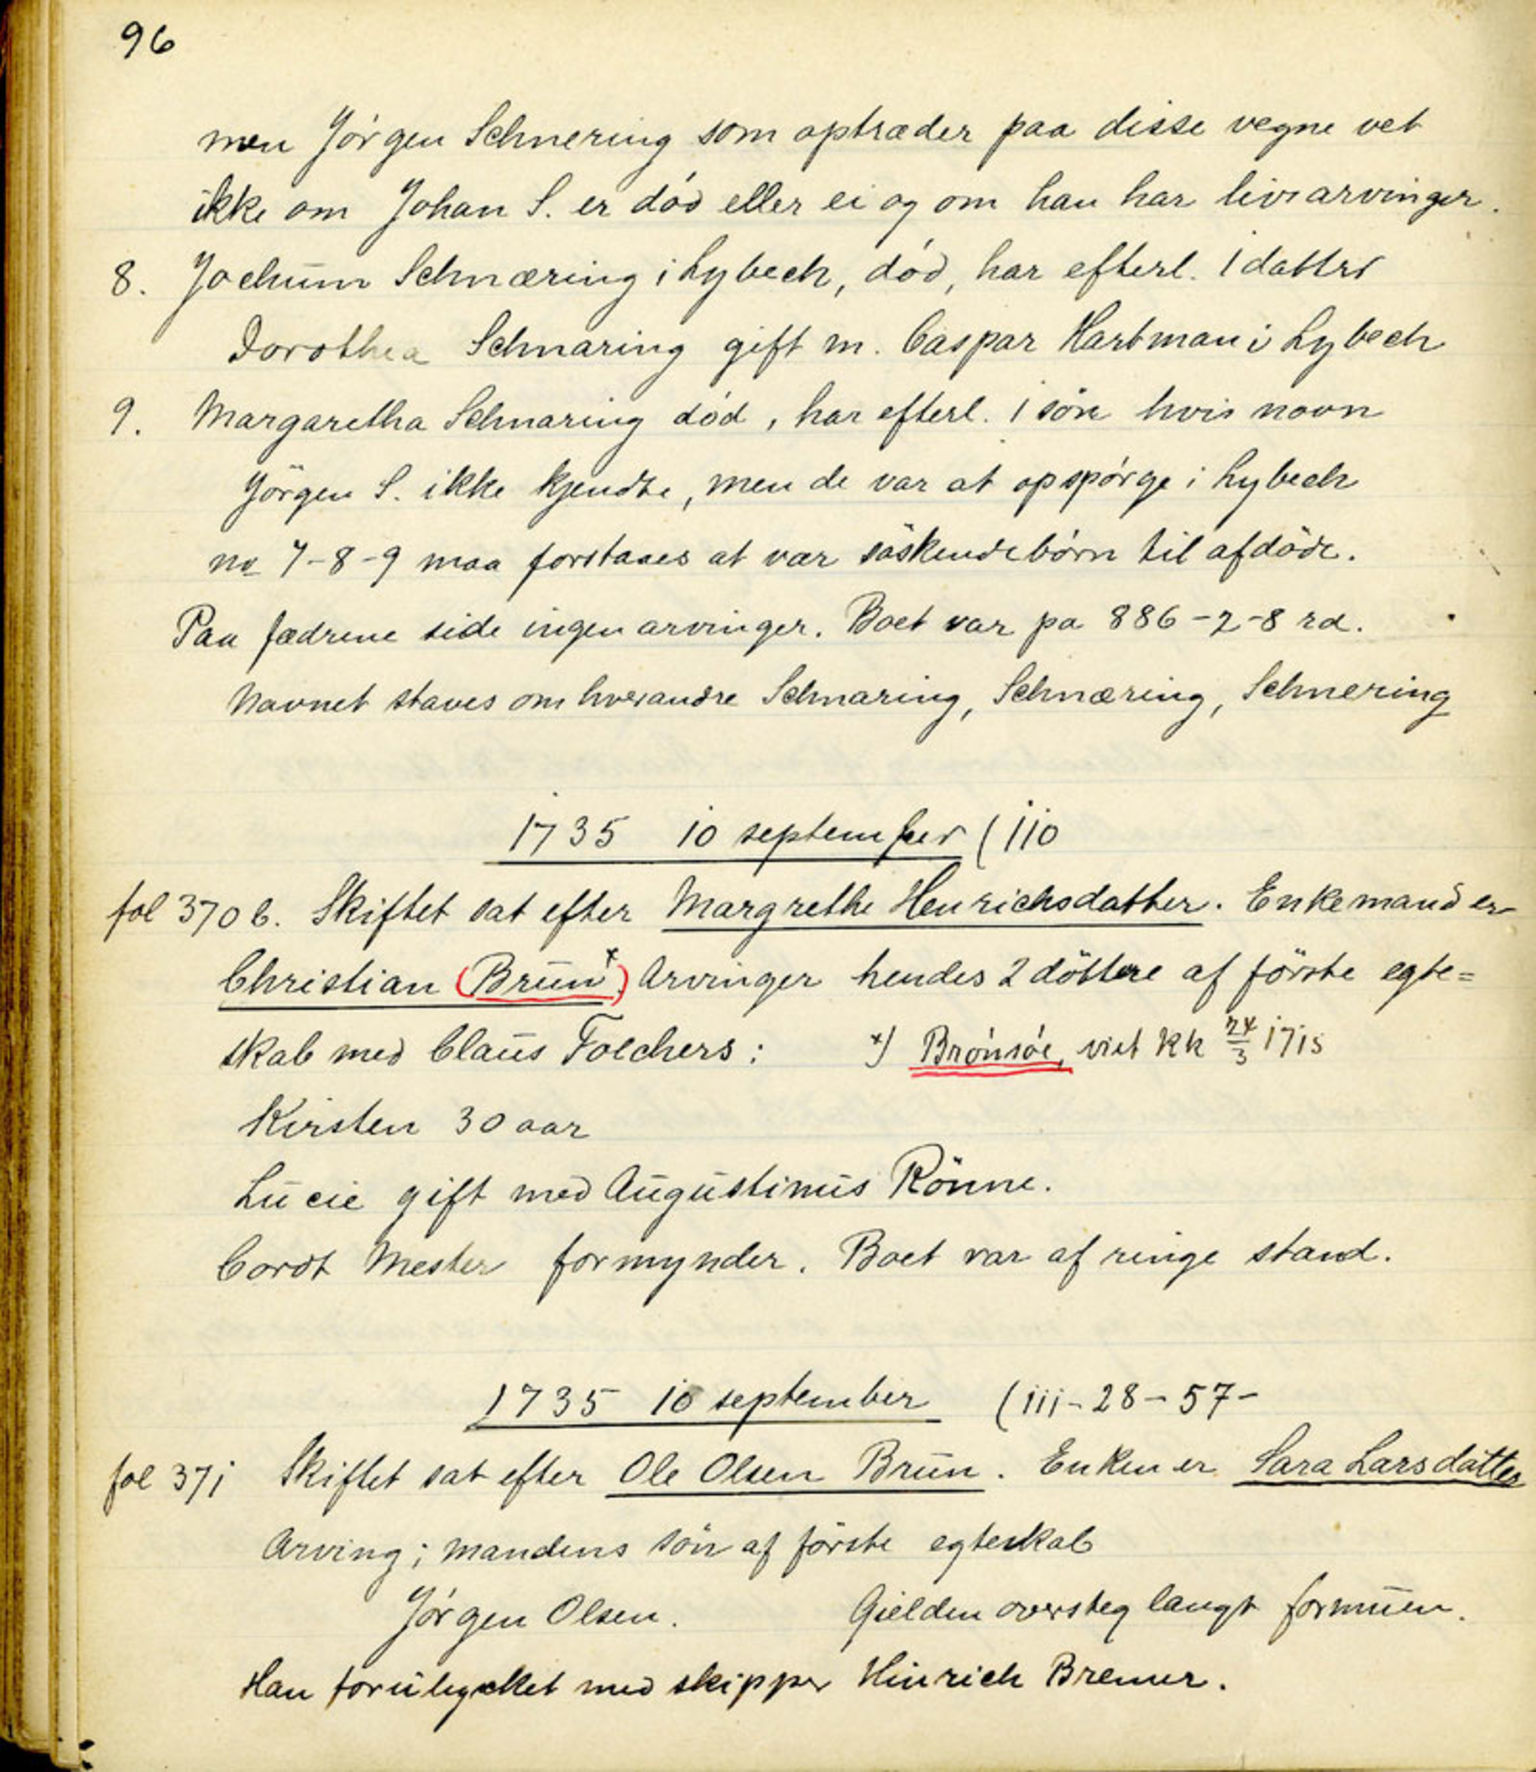 96
men Jörgen Schnering som optræder paa disse vegne vet
ikke om Johan S. er död eller ei og om han har livsarvinger.
8. Jochum Schnæring i Lybech, död, har efterl. 1 datter
Dorothea Schnaring gift m. Caspar Hartman i Lybech
9. Margaretha Schnaring död, har efterl. 1 sön hvis navn
Jörgen S. ikke kjendte, men de var at opspörge i Lybech
no 7-8-9 maa forstaaes at vær söskendebörn til afdöde.
Paa fædrene side ingen arvinger. Boet var pa 886-2-8 rd.
Navnet staves om hverandre Schnaring, Schnæring, Schnering
1735 10 september (110
fol 370 b. Skiftet sat efter Margrethe Henrichsdatter. Enkemand er
Christian (Brun x) Arvinger hendes 2 döttere af förste egte=
skab med Claus Folchers: x) Brönsöe, viet kk 24/3 1715
Kirsten 30 aar
Lucie gift med Augustinus Rönne.
Cordt Mester formynder. Boet var af ringe stand.
1735 10 september (111-28-57-
fol 371 Skiftet sat efter Ole Olsen Brun. Enken er Sara Larsdatter
Arving; mandens sön af förste egteskab
Jörgen Olsen. Gielden oversteg langt formuen.
Han forulycket med skipper Hinrich Bremer.